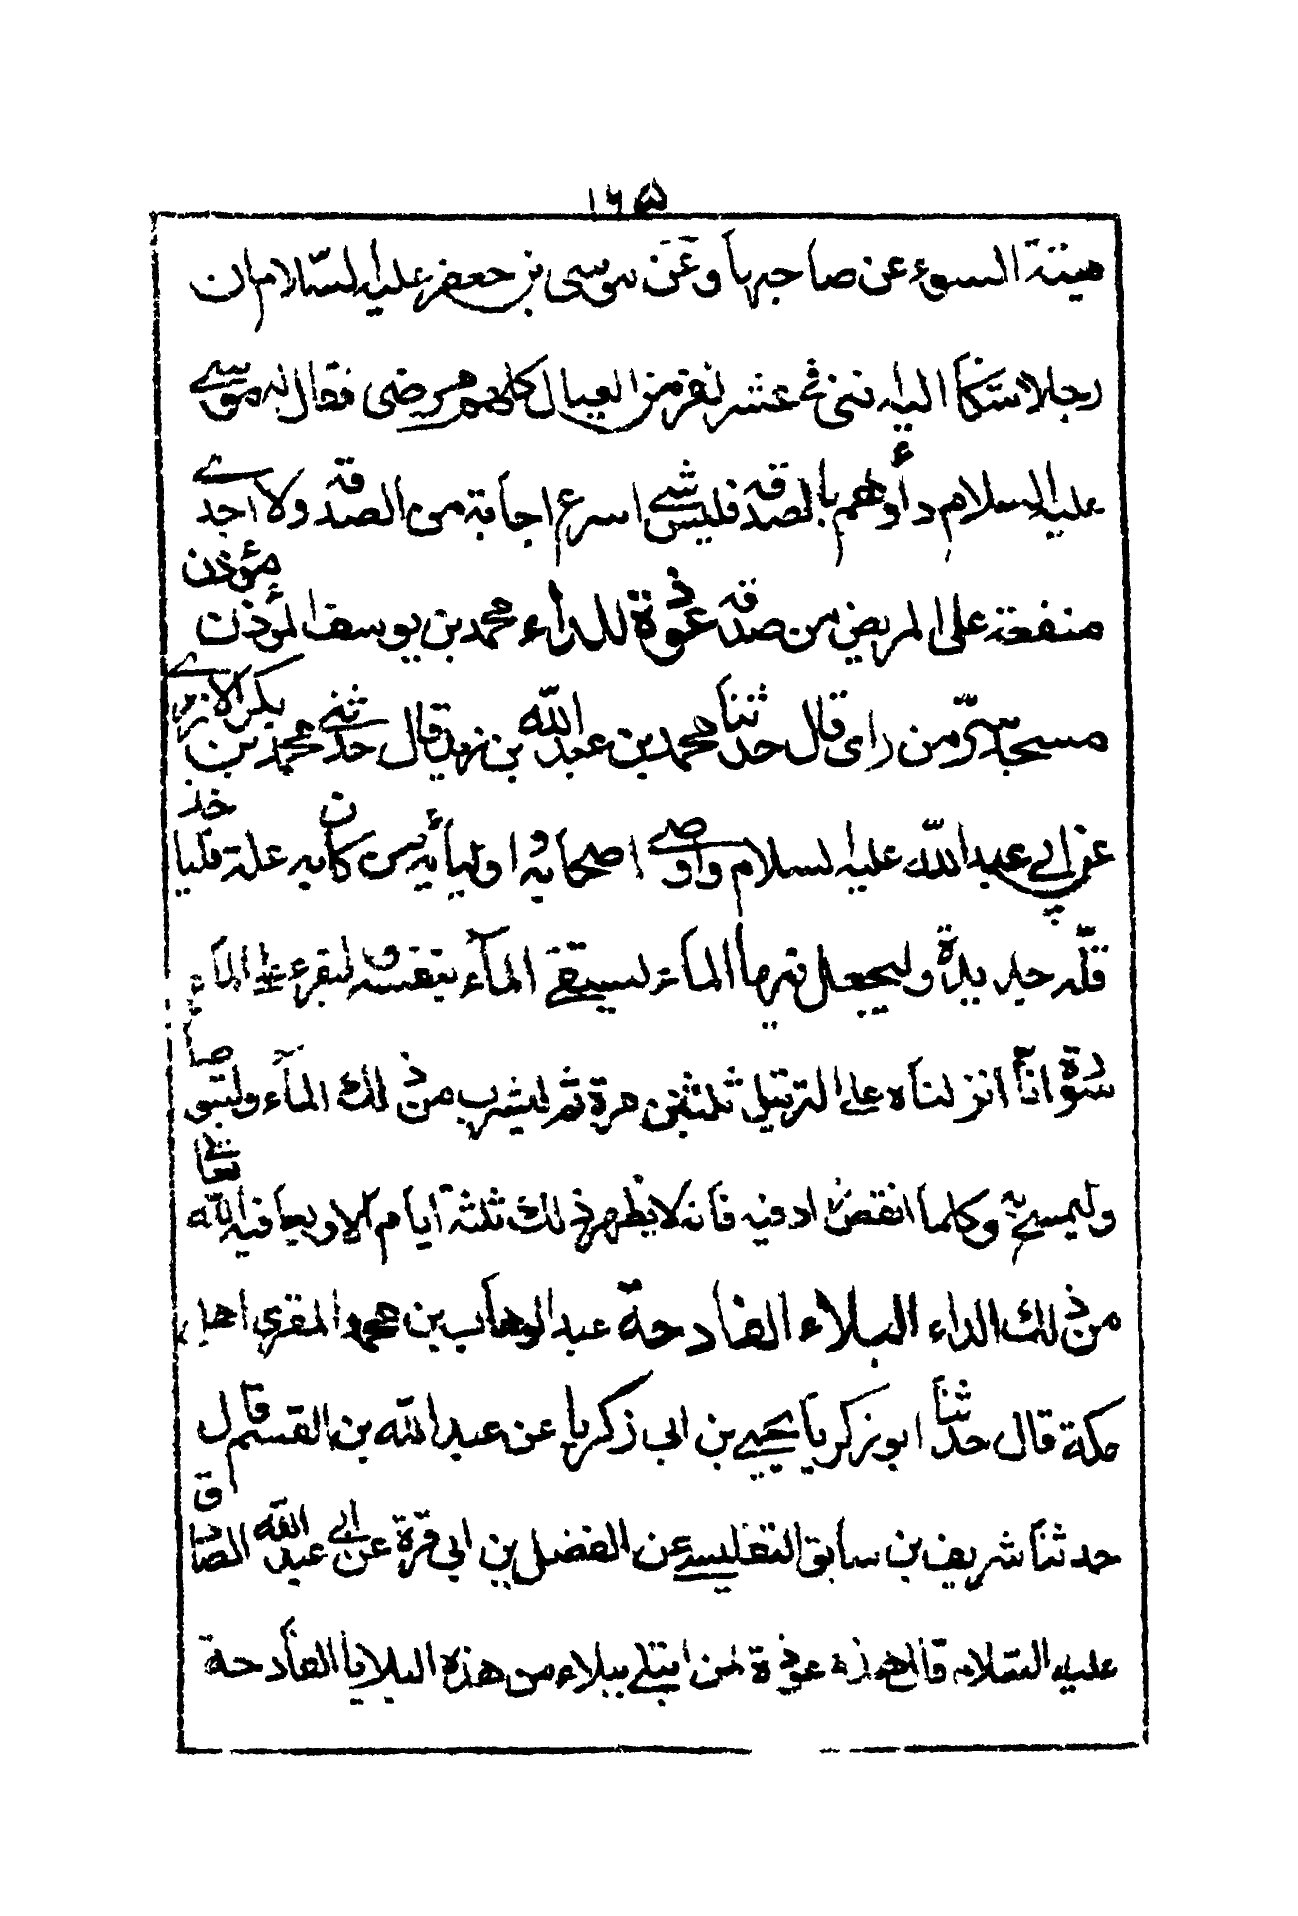 ١٦٥
ميتة السوء عن صاحبها وعن موسى بن جعفر عليه السلام ان
رجلا شكا اليه انني في عشر نفر من العيال كلهم مرضى فقال له موسى
عليه السلام داوهم بالصدقة فليس شي اسرع اجابة من الصدقة ولا اجدى
منفعة على المريض من صدقة عوذة للداء محمد بن يوسف المؤذن مؤذن
مسجد سر من راى قال حدثنا محمد بن عبد الله بن زيد قال حدثني محمد بن بكر الازدي
عن ابي عبد الله عليه السلام واوصى اصحابه واوليائه من كان به علة فليأخذ
قلة جديدة وليجعل فيها الماء ليستقي الماء بنفسه ليقرء على الماء
سورة انا انزلناه على الترتيل ثلثين مرة ثم ليشرب من ذلك الماء وليتوضأ
وليمسح به وكلما انقص زاد فيه فانه لا يظهر ذلك ثلثة ايام الا ويعافيه الله تعالى
من ذلك الداء البلاء الفادحة عبد الوهاب بن محمد المقري اهل
مكة قال حدثنا ابو زكريا يحيى بن ابي زكريا عن عبد الله بن القسم قال
حدثنا شريف بن سابق التفليسي عن الفضل بن ابي قرة عن ابي عبد الله الصادق
عليه السلام قال هذه عوذة لمن ابتلى ببلاء من هذه البلايا الفادحة